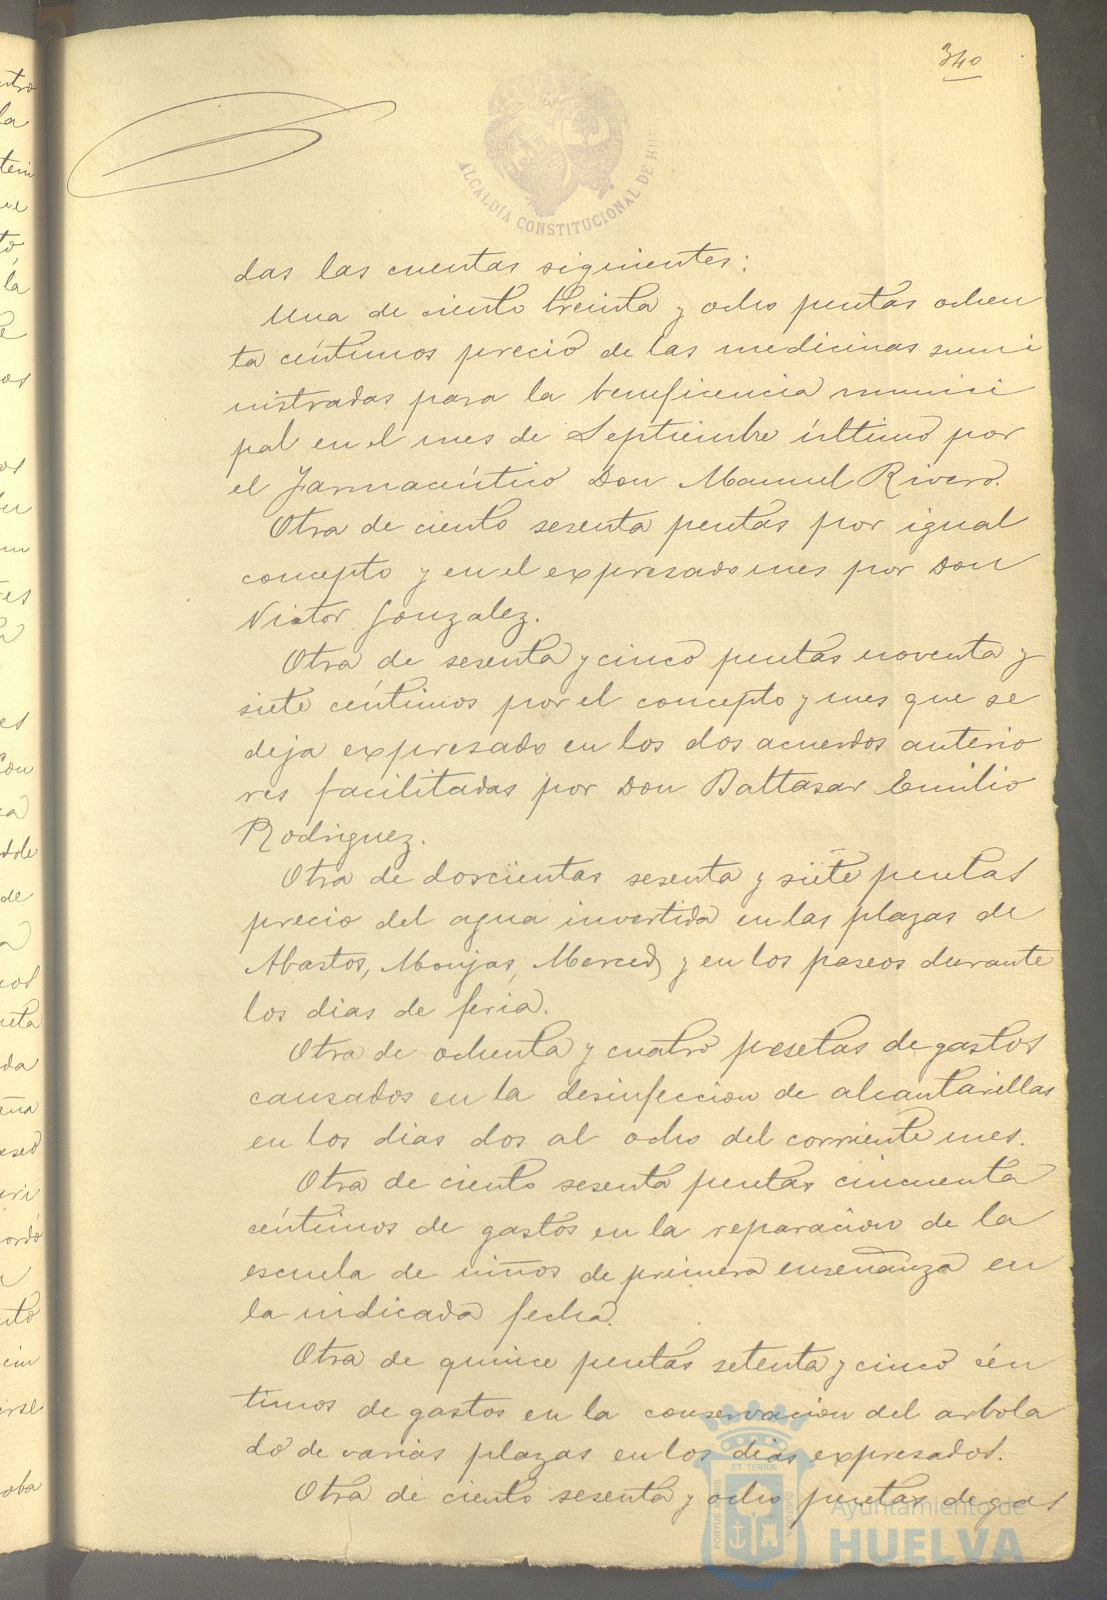 340
ALCALDÍA CONSTITUCIONAL DE H
das las cuentas siguientes:
Una de ciento treinta y ocho pesetas ochen
ta céntimos precio de las medicinas sumi
nistradas para la beneficencia munici
pal en el mes de Septiembre último por
el Farmacéutico Don Manuel Rivero.
Otra de ciento sesenta pesetas por igual
concepto y en el expresado mes por Don
Victor Gonzalez.
Otra de sesenta y cinco pesetas noventa y
siete céntimos por el concepto y mes que se
deja expresado en los dos acuerdos anterio
res facilitadas por Don Baltasar Emilio
Rodriguez.
Otra de doscientas sesenta y siete pesetas
precio del agua invertida en las plazas de
Abastos, Monjas, Merced y en los paseos durante
los dias de feria.
Otra de ochenta y cuatro pesetas de gastos
causados en la desinfeccion de alcantarillas
en los dias dos al ocho del corriente mes.
Otra de ciento sesenta pesetas cincuenta
céntimos de gastos en la reparacion de la
escuela de niños de primera enseñanza en
la indicada fecha.
Otra de quince pesetas setenta y cinco cén
timos de gastos en la conservacion del arbola
do de varias plazas en los dias expresados.
Otra de ciento sesenta y ocho pesetas de gas
Ayuntamiento de
HUELVA